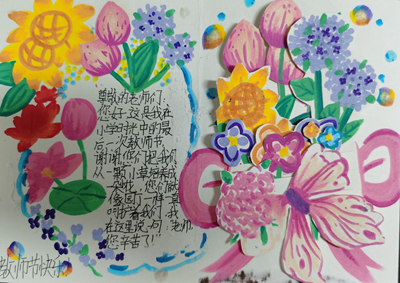 尊敬的老师们:
您好!这是我在
小学时光中的最
后一次教师节,
谢谢您们把我们
从一颗小草培养成
您们就
像园丁一样一直
呵护着我们,我
在这里说一句:老师,
您辛苦了!
教师节快乐